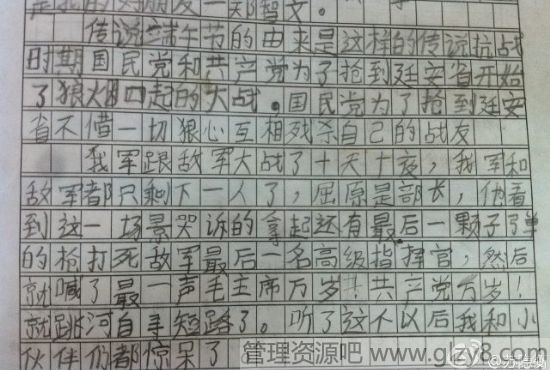 是我的好朋友一郑智文。
传说端午节的由来是这样的传说抗战
时期国民党和共产党为了抢到廷安省开始
了狼火四起的大战。国民党为了抢到廷安
省不借一切狠心互相残杀自己的战友
我军跟敌军大战了十天十夜，我军和
敌军都只剩下一人了，屈原是部长，他看
到这一场景哭诉的拿起还有最后一颗子弹
的枪打死敌军最后一名高级指挥官，然后
就喊了最一声毛主席万岁！共产党万岁！
就跳河自寻短路了。听了这个以后我和小
伙伴们都惊呆了
管理资源吧 www.glzy8.com